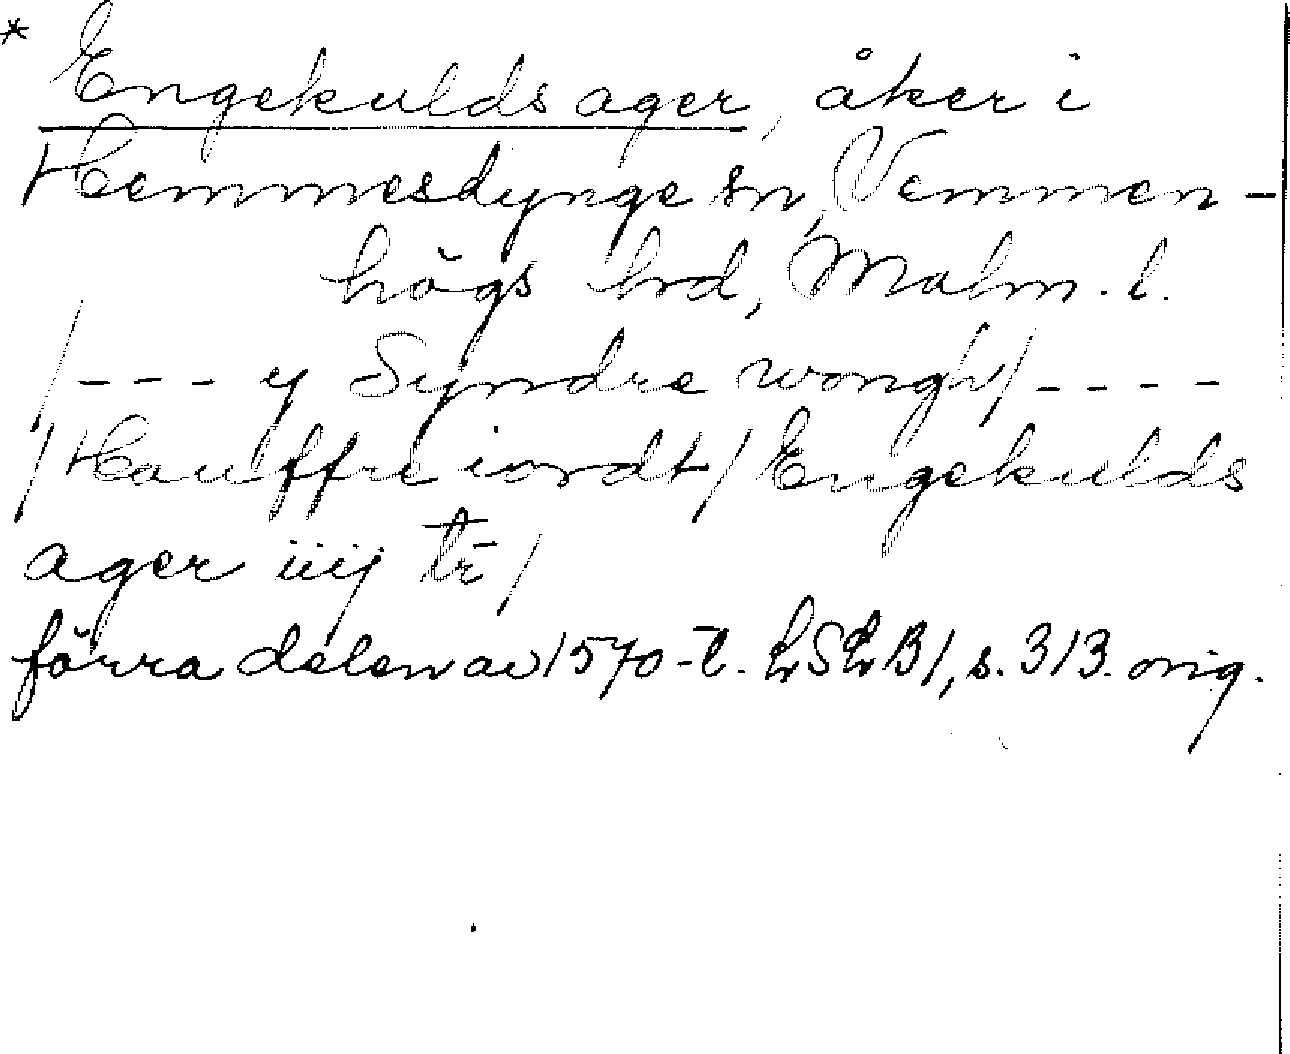 * Engekulds ager, åker i
Hemmesdynge sn, Vemmen-
högs hrd, Malm. l.
/--- y Syndre wongh/----
/Hauffre iordt/Engekulds
ager iiij tr̄/
förra delen av 1570-t. LSLB1, s. 313. orig.